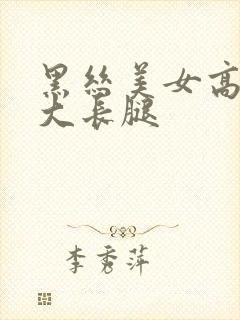 黑丝美女高
大长腿
李秀萍